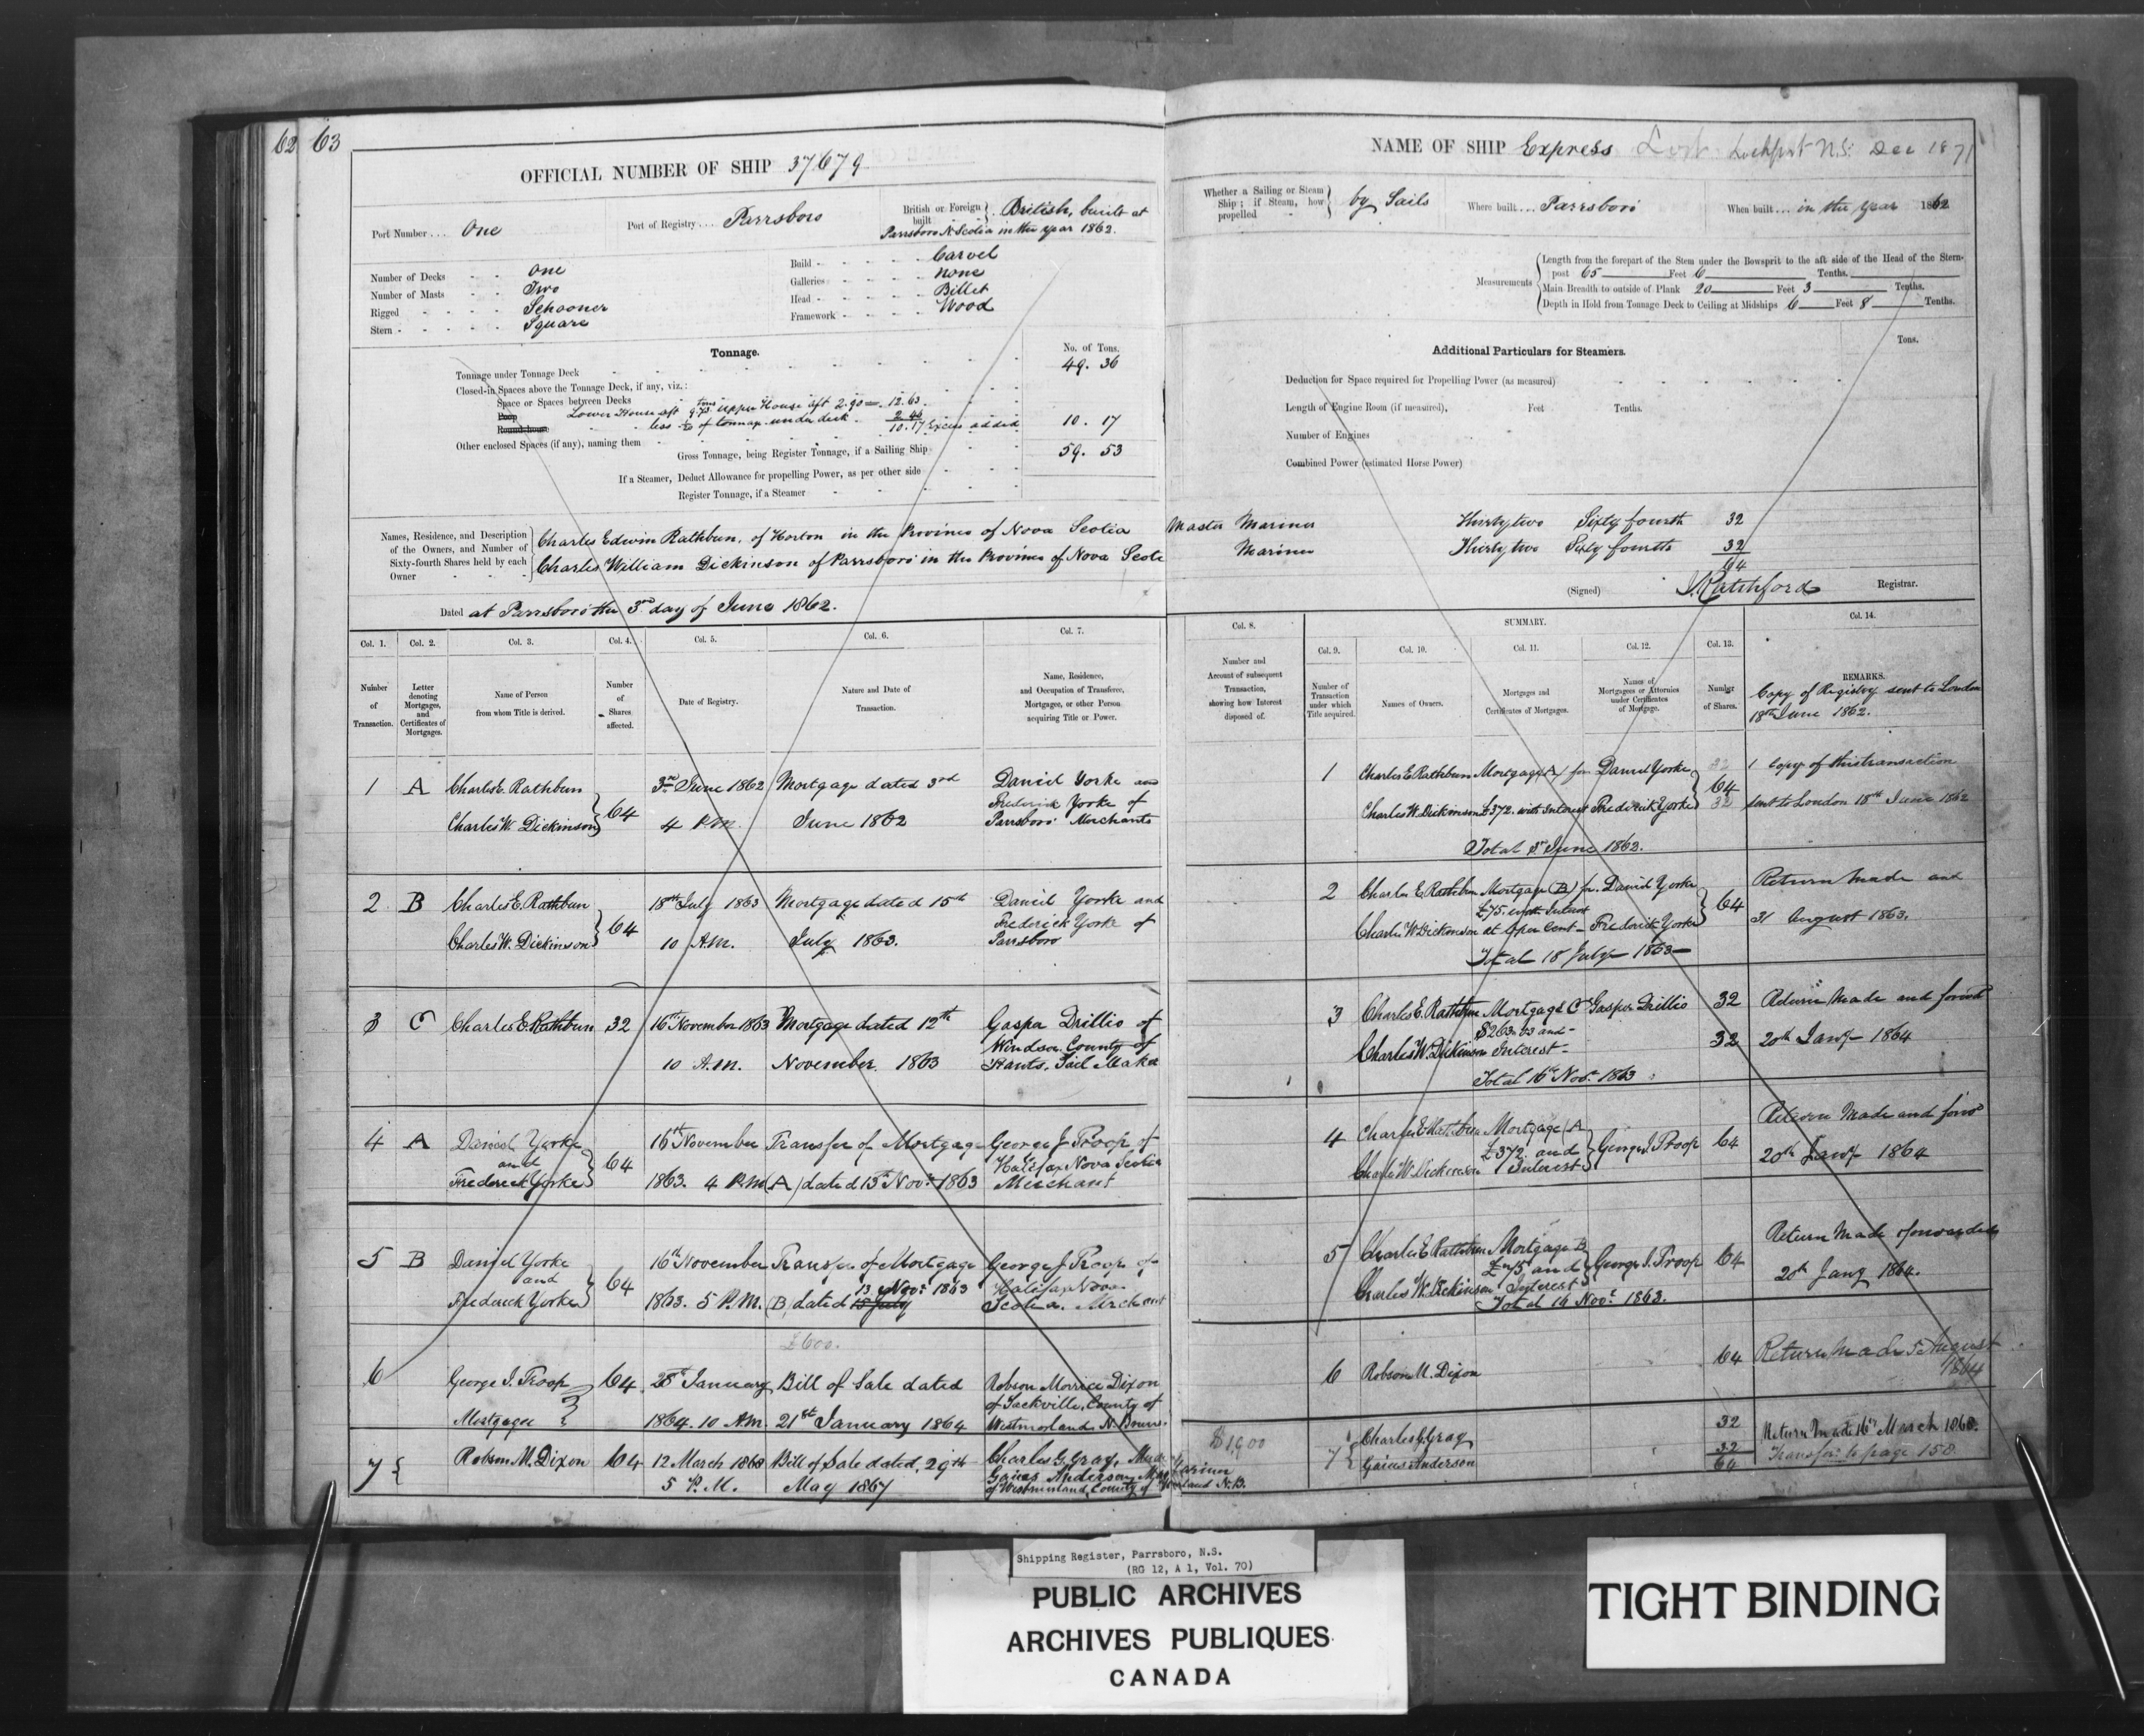 62 63
OFFICIAL NUMBER OF SHIP 37679
Port Number ... One
Port of Registry .... Parrsboro
British or Foreign built } British, built at
Parrsboro N. Scotia in the year 1862.
Number of Decks - - One
Number of Masts - - Two
Rigged - - - - Schooner
Stern - - - - - Square
Build - - - - - - Carvel
Galleries - - - - - none
Head - - - - - - Billet
Framework - - - - - Wood
Tonnage.
No. of Tons.
Tonnage under Tonnage Deck 49. 36
Closed-in Spaces above the Tonnage Deck, if any, viz.:
Space or Spaces between Decks
Poop Lower House aft 9.73 tons Upper House aft 2.90 = 12.63
Round-house less 1/20 of tonnage under deck 2.46
10.17 Excess added 10. 17
Other enclosed Spaces (if any), naming them
Gross Tonnage, being Register Tonnage, if a Sailing Ship 59. 53
If a Steamer, Deduct Allowance for propelling Power, as per other side
Register Tonnage, if a Steamer
Names, Residence, and Description of the Owners, and Number of Sixty-fourth Shares held by each Owner
Charles Edwin Rathbun, of Horton in the Province of Nova Scotia
Charles William Dickinson of Parrsboro in the Province of Nova Scotia
Dated at Parrsboro the 3rd day of June 1862.
Col. 1. Col. 2. Col. 3. Col. 4. Col. 5. Col. 6. Col. 7.
Number of Transaction.
Letter denoting Mortgages, and Certificates of Mortgages.
Name of Person from whom Title is derived.
Number of Shares affected.
Date of Registry.
Nature and Date of Transaction.
Name, Residence, and Occupation of Transferee, Mortgagee, or other Person acquiring Title or Power.
1 A Charles E. Rathbun 3rd June 1862 Mortgage dated 3rd Daniel Yorke and
Frederick Yorke of
Charles W. Dickinson } 64 4 P.M. June 1862 Parrsboro Merchants
2 B Charles E. Rathbun 18th July 1863 Mortgage dated 15th Daniel Yorke and
Frederick Yorke of
Charles W. Dickinson } 64 10 A.M. July 1863. Parrsboro
3 C Charles E. Rathbun 32 16th November 1863 Mortgage dated 12th Gaspa Drillio of
Windsor County of
10 A.M. November 1863 Hants. Sail Maker
4 A Daniel Yorke 16th November Transfer of Mortgage George J Troop of
and } 64 Halifax Nova Scotia
Frederick Yorke 1863. 4 P.M. (A) dated 13th Novr. 1863 Merchant
5 B Daniel Yorke 16th November Transfer of Mortgage George J Troop of
and } 64 13 Novr. 1863 Halifax Nova
Frederick Yorke 1863. 5 P.M. (B) dated 15 July Scotia. Merchant
£600.
6 George J. Troop 64 28th January Bill of Sale dated Robson Morrice Dixon
of Sackville, County of
Mortgagee 1864. 10 A.M. 21st January 1864 Westmorland N. Brunsc
7 { Robson M. Dixon 64 12 March 1868 Bill of Sale dated, 29th Charles G. Gray,
5 P.M. May 1867 Gaius Anderson
of Westmorland County of
NAME OF SHIP Express Lost Lockport N.S. Dec 1871
Whether a Sailing or Steam Ship; if Steam, how propelled } by Sails
Where built ... Parrsboro
When built ... in the year 1862
Measurements
Length from the forepart of the Stem under the Bowsprit to the aft side of the Head of the Stern-
post 65 Feet 6 Tenths.
Main Breadth to outside of Plank 20 Feet 3 Tenths.
Depth in Hold from Tonnage Deck to Ceiling at Midships 6 Feet 8 Tenths.
Additional Particulars for Steamers.
Tons.
Deduction for Space required for Propelling Power (as measured)
Length of Engine Room (if measured), Feet Tenths.
Number of Engines
Combined Power (estimated Horse Power)
Master Mariner Thirty two Sixty fourth 32
Mariner Thirty two Sixty fourths 32
64
(Signed) J. Ratchford Registrar.
SUMMARY.
Col. 8. Col. 9. Col. 10. Col. 11. Col. 12. Col. 13. Col. 14.
Number and Account of subsequent Transaction, showing how Interest disposed of.
Number of Transaction under which Title acquired.
Names of Owners.
Mortgages and Certificates of Mortgages.
Names of Mortgagees or Attornies under Certificates of Mortgage.
Number of Shares.
REMARKS.
Copy of Registry sent to London
18th June 1862.
1 Charles E Rathbun Mortgage (A) for Daniel Yorke 32 1 Copy of this transaction
64
Charles W. Dickinson £372. with Interest Frederick Yorke 32 sent to London 18th June 1862
Total 3rd June 1862.
2 Charles E. Rathbun Mortgage (B) for Daniel Yorke Return Made and
£75. with Interest } 64
Charles W Dickinson at 6 per Cent - Frederick Yorke 31 August 1863.
Total 18 July 1863
3 Charles E. Rathbun Mortgage C Gaspar Drillio 32 Return Made and forwd
and -
Charles W. Dickinson Interest - 32 20th Jany 1864
Total 16th Novr. 1863
4 Charles E Rathbun Mortgage (A Return Made and forwd
£372 and } George J. Troop 64
Charles W. Dickinson Interest 20th Jany 1864
5 Charles E Rathbun Mortgage B Return Made & forwarded
£75 and } George J. Troop 64
Charles W. Dickinson Interest 20th Jany 1864.
Total 16 Novr. 1863.
6 Robson M. Dixon 64 Return Made 5 August
1864
$1,900 7 { Charles G. Gray 32 Return Made 16th March 1868.
Mariner Gaius Anderson 32 Transfer to page 158
N.B. 64
Shipping Register, Parrsboro, N.S.
(RG 12, A 1, Vol. 70)
PUBLIC ARCHIVES
ARCHIVES PUBLIQUES
CANADA
TIGHT BINDING